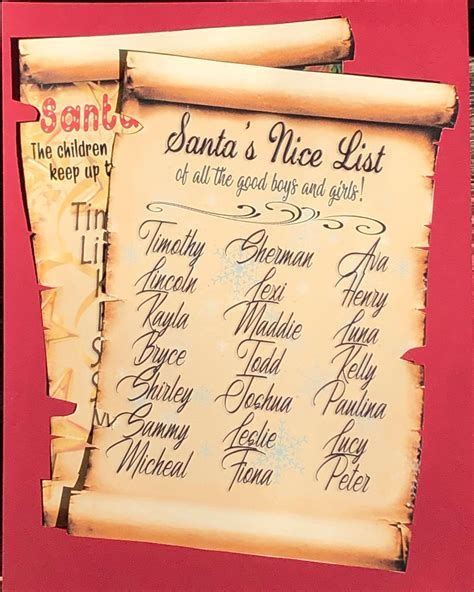 Santa
The children
keep up t
Tim
Li
Santa's Nice List
of all the good boys and girls!
Timothy Sherman Ava
Lincoln Lexi Henry
Kayla Maddie Luna
Bryce Todd Kelly
Shirley Joshua Paulina
Sammy Leslie Lucy
Micheal Fiona Peter